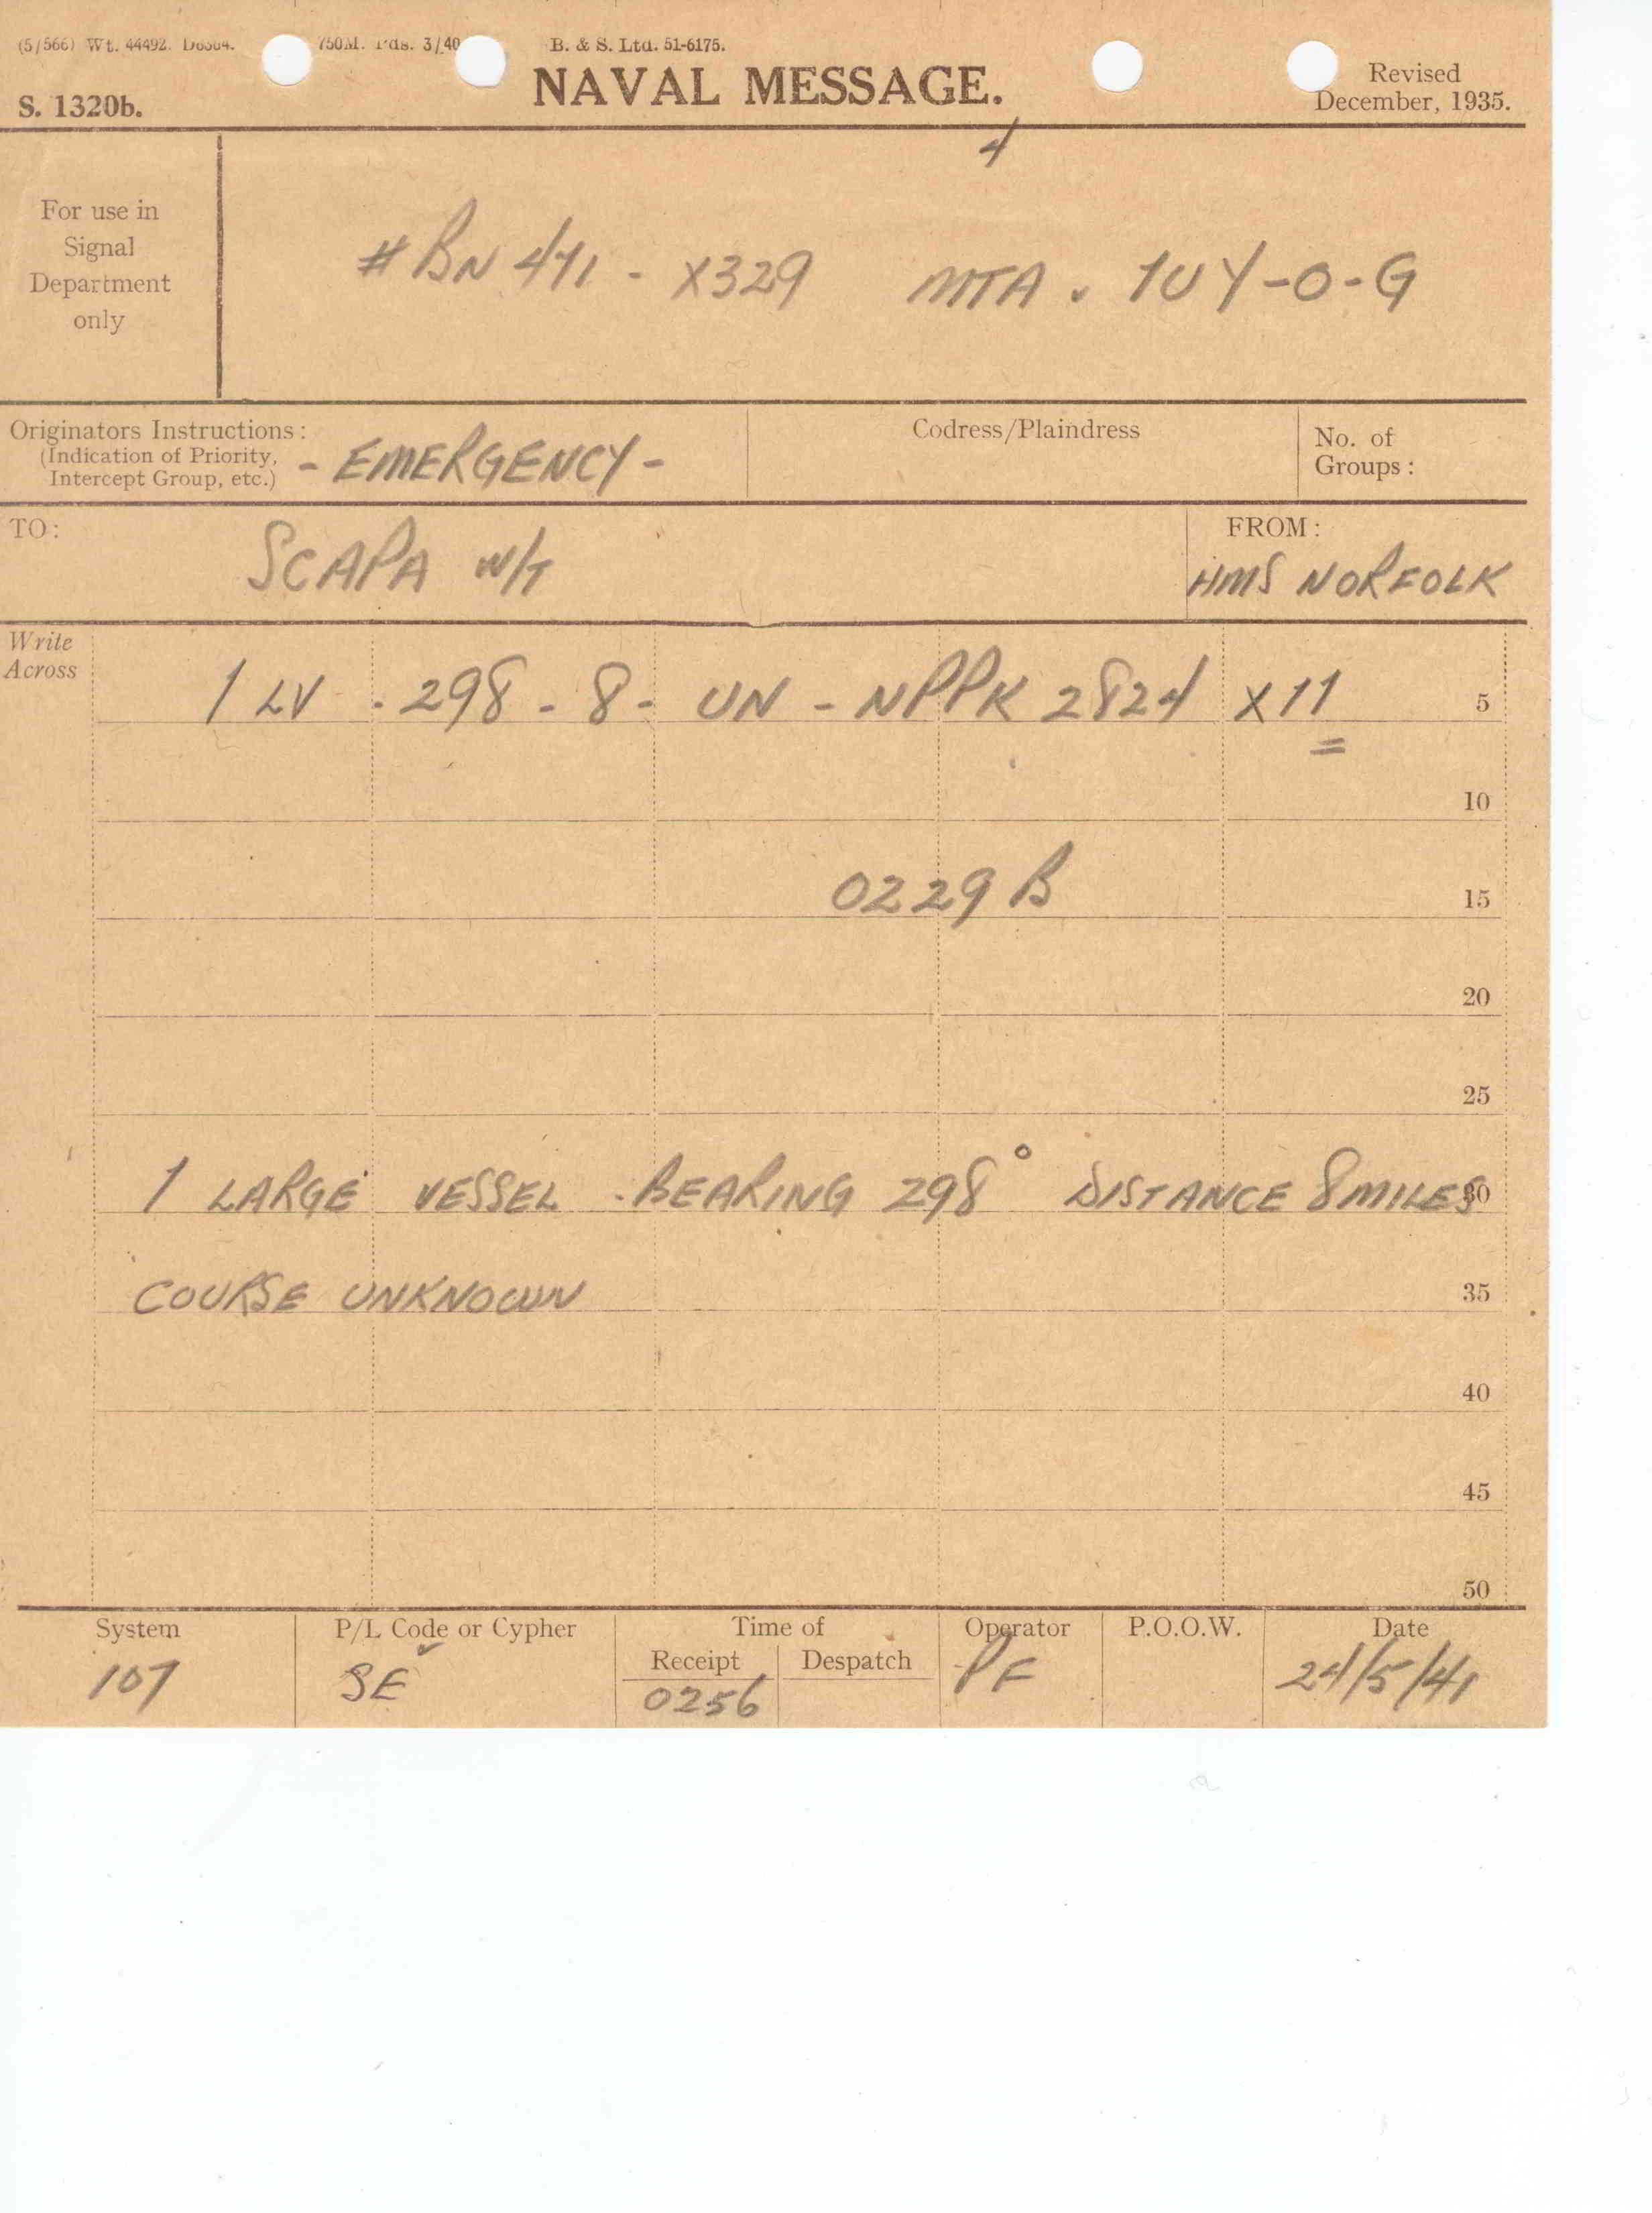 (5/566) Wt. 44492. 750M. Pds. 3/40 B. & S. Ltd. 51-6175.
S. 1320b. NAVAL MESSAGE. Revised December, 1935.
4
For use in
Signal
Department
only
# BN 471 - X329 MTA . 1UY-O-G
Originators Instructions :
(Indication of Priority,
Intercept Group, etc.)
- EMERGENCY -
Codress/Plaindress
No. of
Groups :
TO :
SCAPA W/T
FROM :
HMS NORFOLK
Write
Across
1 LV . 298 - 8 - UN - NPPK 2824 X 11 5
=
10
0229 B 15
20
25
1 LARGE VESSEL . BEARING 298° DISTANCE 8 MILES 30
COURSE UNKNOWN 35
40
45
50
System P/L Code or Cypher Time of Operator P.O.O.W. Date
Receipt Despatch
107 SE 0256 PF 24/5/41